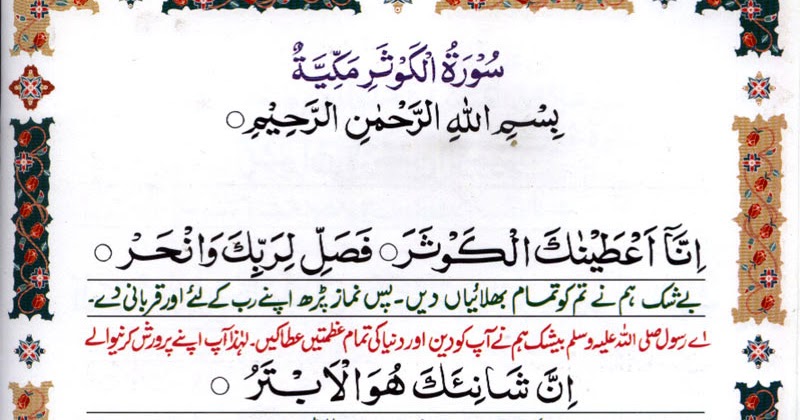 سُوْرَةُ الْكَوْثَرِ مَكِّيَّةٌ
بِسْمِ اللهِ الرَّحْمٰنِ الرَّحِيْمِ○
اِنَّآ اَعْطَيْنٰكَ الْكَوْثَرَ○ فَصَلِّ لِرَبِّكَ وَانْحَرْ○
بے شک ہم نے تم کو تمام بھلائیاں دیں۔ پس نماز پڑھ اپنے رب کے لئے اور قربانی دے۔
اے رسول صلی اللہ علیہ وسلم بیشک ہم نے آپ کو دین اور دنیا کی تمام عظمتیں عطا کیں۔ لہٰذا آپ اپنے پرورش کرنیوالے
اِنَّ شَانِئَكَ هُوَ الْاَبْتَرُ○